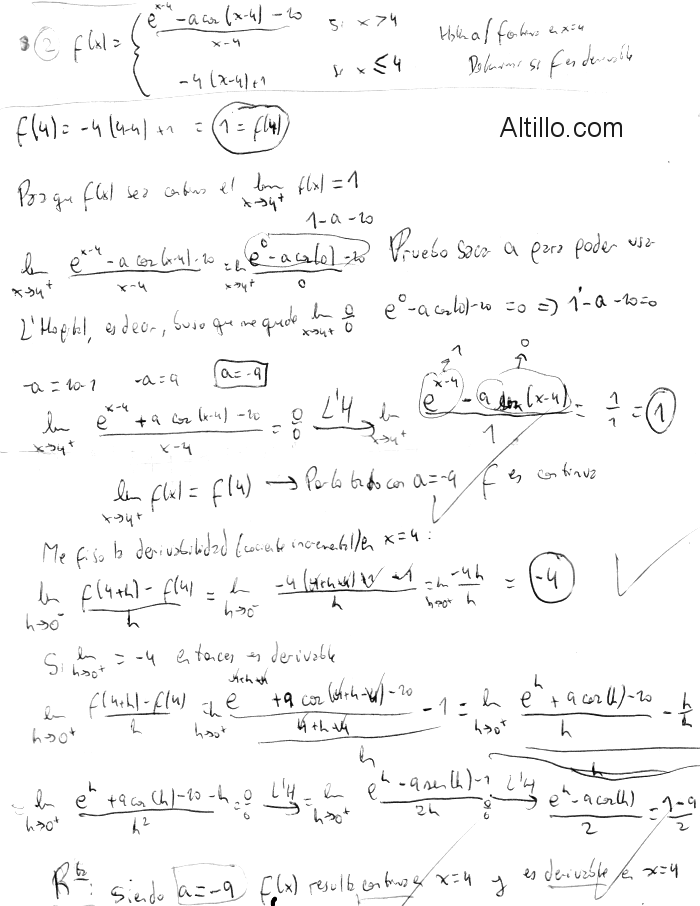 ② f(x) = { (e^(x-4) - a cos(x-4) - 10)/(x-4) si x > 4
-4(x-4)+1 si x ≤ 4
Hallar a/ f continua en x=4
Determinar si f es derivable
f(4) = -4(4-4)+1 = 1 = f(4)
Altillo.com
Para que f(x) sea continua el lim x→4⁺ f(x) = 1
1-a-10
lim x→4⁺ (e^(x-4) - a cos(x-4) - 10)/(x-4) = lim x→4⁺ (e^0 - a cos(0) - 10)/0 Pruebo sacar a para poder usar
L'Hopital, es decir, busco que me quede lim x→4⁺ 0/0 e^0 - a cos(0) - 10 = 0 ⇒ 1 - a - 10 = 0
-a = 10-1 -a = 9 a = -9
lim x→4⁺ (e^(x-4) + 9 cos(x-4) - 10)/(x-4) = 0/0 L'H → lim x→4⁺ (e^(x-4) - 9 sen(x-4))/1 = 1/1 = 1
lim x→4⁺ f(x) = f(4) → Por lo tanto con a=-9 f es continua
Me fijo la derivabilidad (cociente incremental) en x=4:
lim h→0⁻ (f(4+h) - f(4))/h = lim h→0⁻ (-4(4+h-4)+1 -1)/h = lim h→0⁺ -4h/h = -4
Si lim h→0⁺ = -4 entonces es derivable
lim h→0⁺ (f(4+h) - f(4))/h = lim h→0⁺ ((e^(4+h-4) + 9 cos(4+h-4) - 10)/(4+h-4) - 1)/h = lim h→0⁺ ((e^h + 9 cos(h) - 10)/h - h/h)/h
= lim h→0⁺ (e^h + 9 cos(h) - 10 - h)/h² = 0/0 L'H → = lim h→0⁺ (e^h - 9 sen(h) - 1)/2h 0/0 L'H → (e^h - 9 cos(h))/2 = (1-9)/2
Rta: siendo a=-9 f(x) resulta continua en x=4 y es derivable en x=4